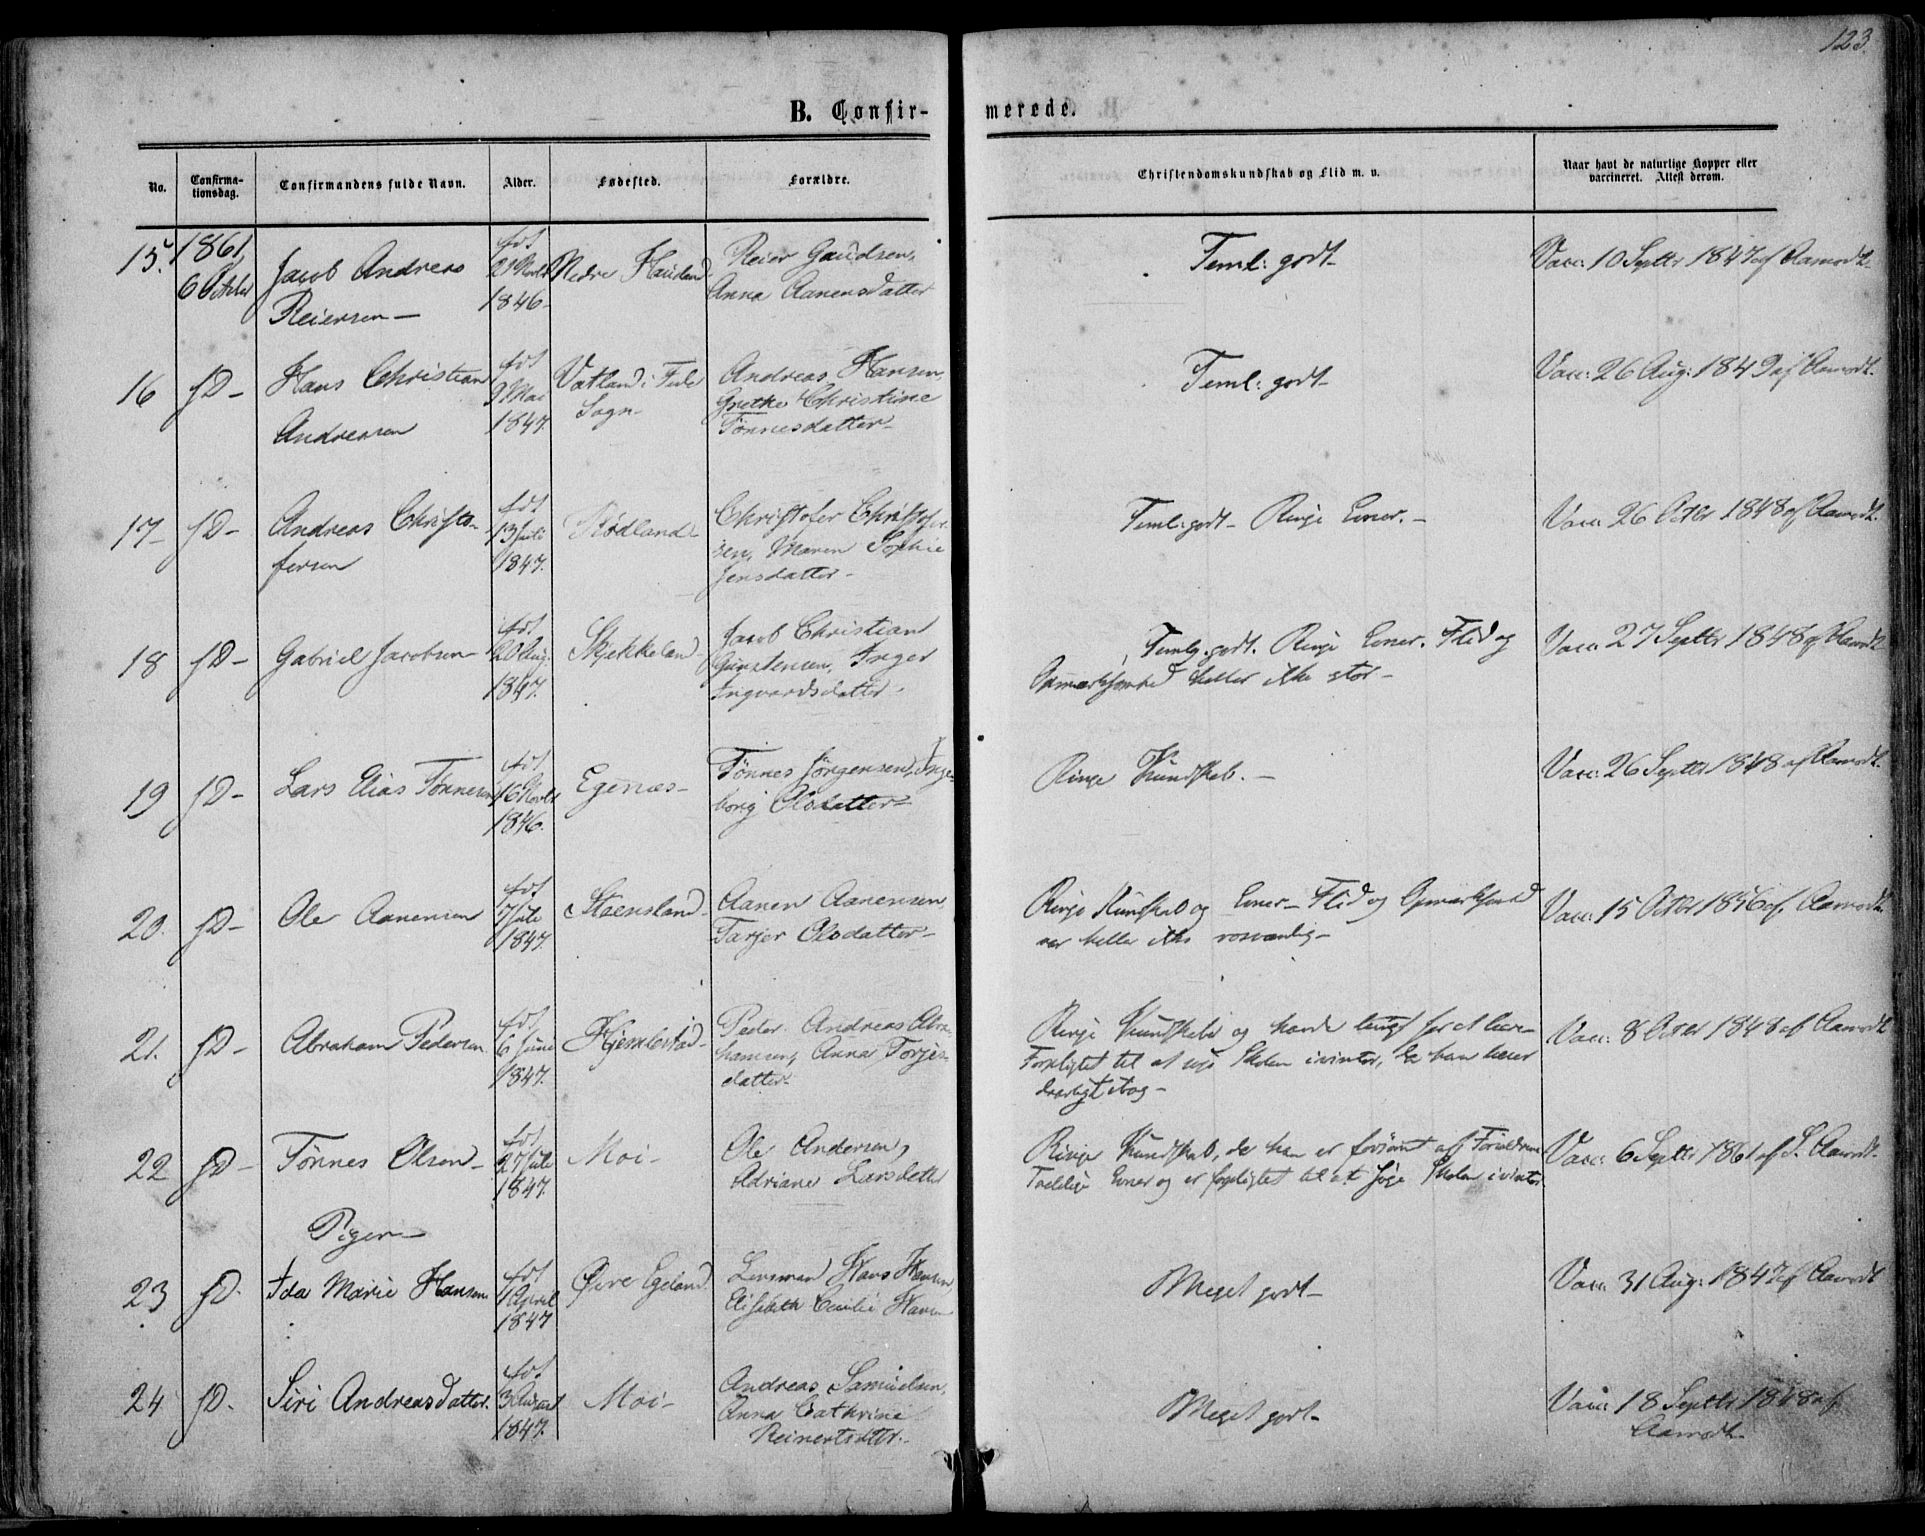 123.
B. Confirmerede.
No. Confirmationsdag. Confirmandens fulde Navn. Alder. Fødested. Forældre. Christendomskundskab og Flid m. v. Naar havt de naturlige Kopper eller vaccineret. Attest derom.
15. 1861 6 Octbr Jacob Andreas Reiersen — fdt 21 Novbr 1846 — Nedre Hauland Reier Gaudsen, Anna Aanensdatter Teml: godt — Vacc: 10 Septbr 1847 af Aamodt —
16 fD — Hans Christian Andreasen fdt 9 Mai 1847. Vatland i Sogn — Andreas Hansen, Grethe Christine Tønnesdatter — Teml: godt — Vacc: 26 Aug: 1849 af Aamodt.
17 — fD — Andreas Christofersen fdt 13 Juli 1847. Rødland — Christofer Christofersen, Maren Sophie Jensdatter — Teml: godt — Ringe Evner. — Vacc 26 Octbr 1848 af Aamodt.
18 fD — Gabriel Jacobsen — fdt 20 Aug. 1847. Skjekkeland Jacob Christian Inger Ingvardsdatter — Temlg. godt. Ringe Evner. Flid og
Opmærksomhed heller ikke stor — Vacc: 27 Septbr 1848 af Aamodt
19 fD — Lars Elias Tønnesen fdt 16 Novbr 1846. Egenæs — Tønnes Jørgensen, Ingeborg Olsdatter — Ringe Kundskab. — Vacc: 26 Septbr 1848 af Aamodt.
20. fD — Ole Aanensen fdt 7 Juli 1847. Stoensland — Aanen Aanensen, Tarjer Olsdatter — Ringe Kundskab og Evner — Flid og Opmærksomhed
var heller ikke — Vacc: 15 Octbr 1856 af Aamodt.
21. fD — Abraham Pedersen fdt 6 Juni 1847. Hjemlestad — Peder Andreas Abrahamsen, Anna Torjesdatter — Ringe Kundskab og havde tungt for at lære —
Forpligtet til at søge Skolen i vinter, da han læser
daarligt i bog — Vacc: 8 Octbr 1848 af Aamodt
22 fD — Tønnes Olsen — fdt 27 Juli 1847. Moi — Ole Andersen, Adriane Larsdatter Ringe Kundskab, da han er forsømt af Forældrene
Taalelige Evner og er forpligtet til at søge Skolen i vinter. Vacc: 6 Septbr 1861 af S. Aamodt.
Piger —
23 fD. Ida Marie Hansen fdt 1 April 1847 Øvre Egeland. Lensmand Hans Hansen, Elisabeth Cecilie Meget godt — Vacc: 31 Aug: 1847 af Aamodt
24 fD. Siri Andreasdatter. fdt. 3 1847. Moi — Andreas Samuelsen, Anna Cathrine Reinertsdatter. Meget godt — Vacc: 18 Septbr 1848 af Aamodt —